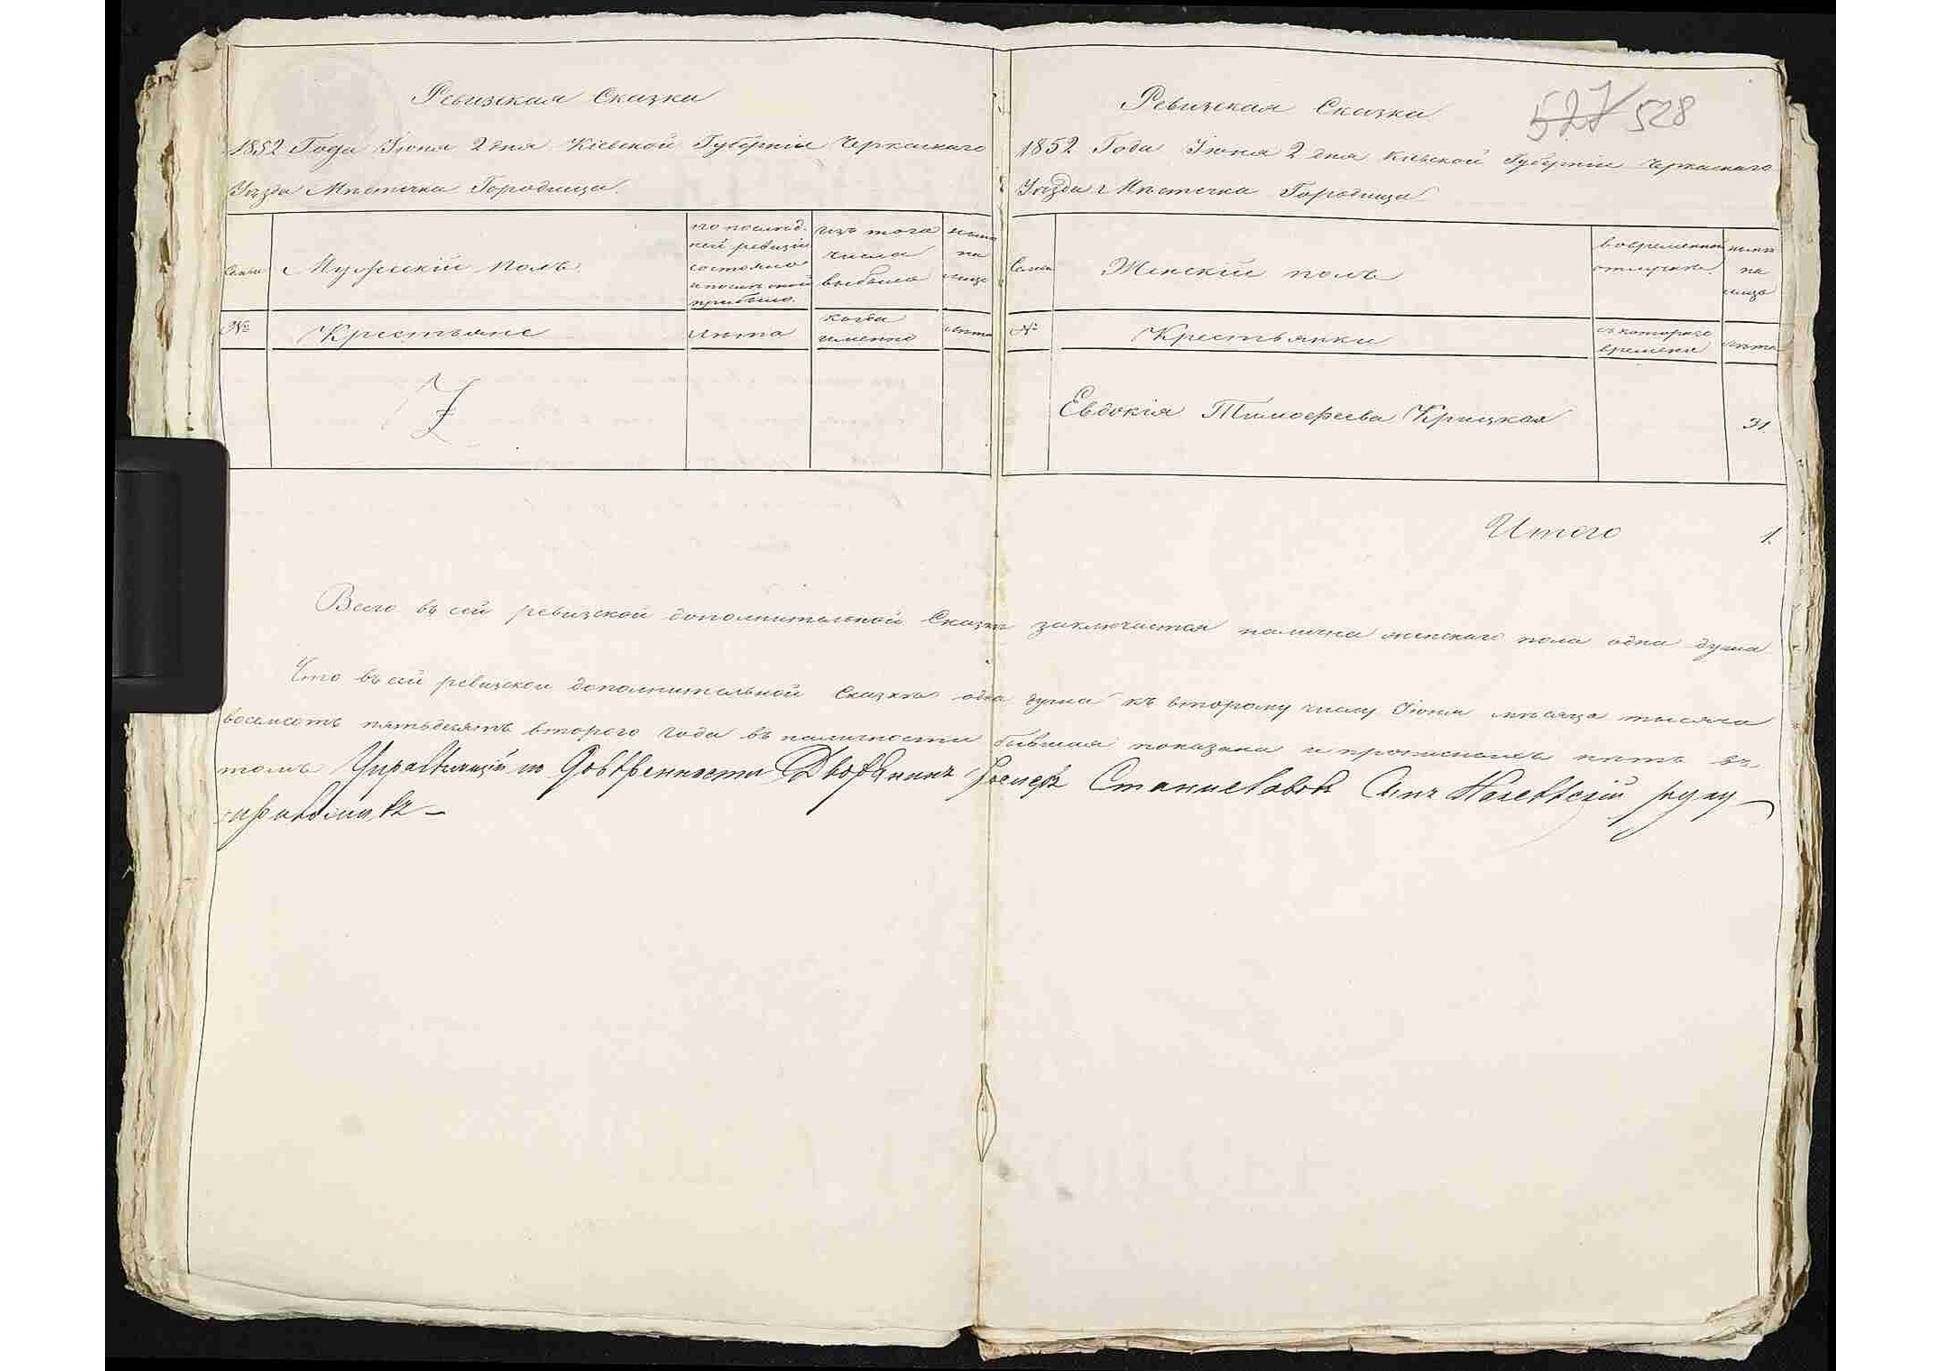 Ревизская Сказка
1852 Года Іюня 2 дня Кіевской Губерніи Черкаскаго
Уѣзда Мѣстечка Городища.
Семьи
Мужескій полъ
по послѣд-
ней ревизіи
состояло
и послѣ оной
прибыло.
изъ того
числа
выбыло
нынѣ
на
лицо
№
Крестьяне
лѣта
когда
именно
лѣта
Ревизская Сказка
527 528
1852 Года Іюня 2 дня Кіевской Губерніи Черкаскаго
Уѣзда Мѣстечка Городища
Семьи
Женскій полъ
во временной
отлучкѣ.
нынѣ
на
лицо
№
Крестьянки
съ котораго
времени
лѣта
Евдокія Тимофеева Крицкая
31.
Итого 1.
Всего въ сей ревизской дополнительной Сказкѣ заключается налично женскаго пола одна душа
Что въ сей ревизской дополнительной Сказкѣ одна душа къ второму числу Іюня мѣсяца тысяча
восемсотъ пятьдесятъ второго года въ наличности бывшая показана и прописныхъ нѣтъ въ
томъ Управляющій по Довѣренности Дворянинъ Іосифъ Станиславовъ Сынъ руку